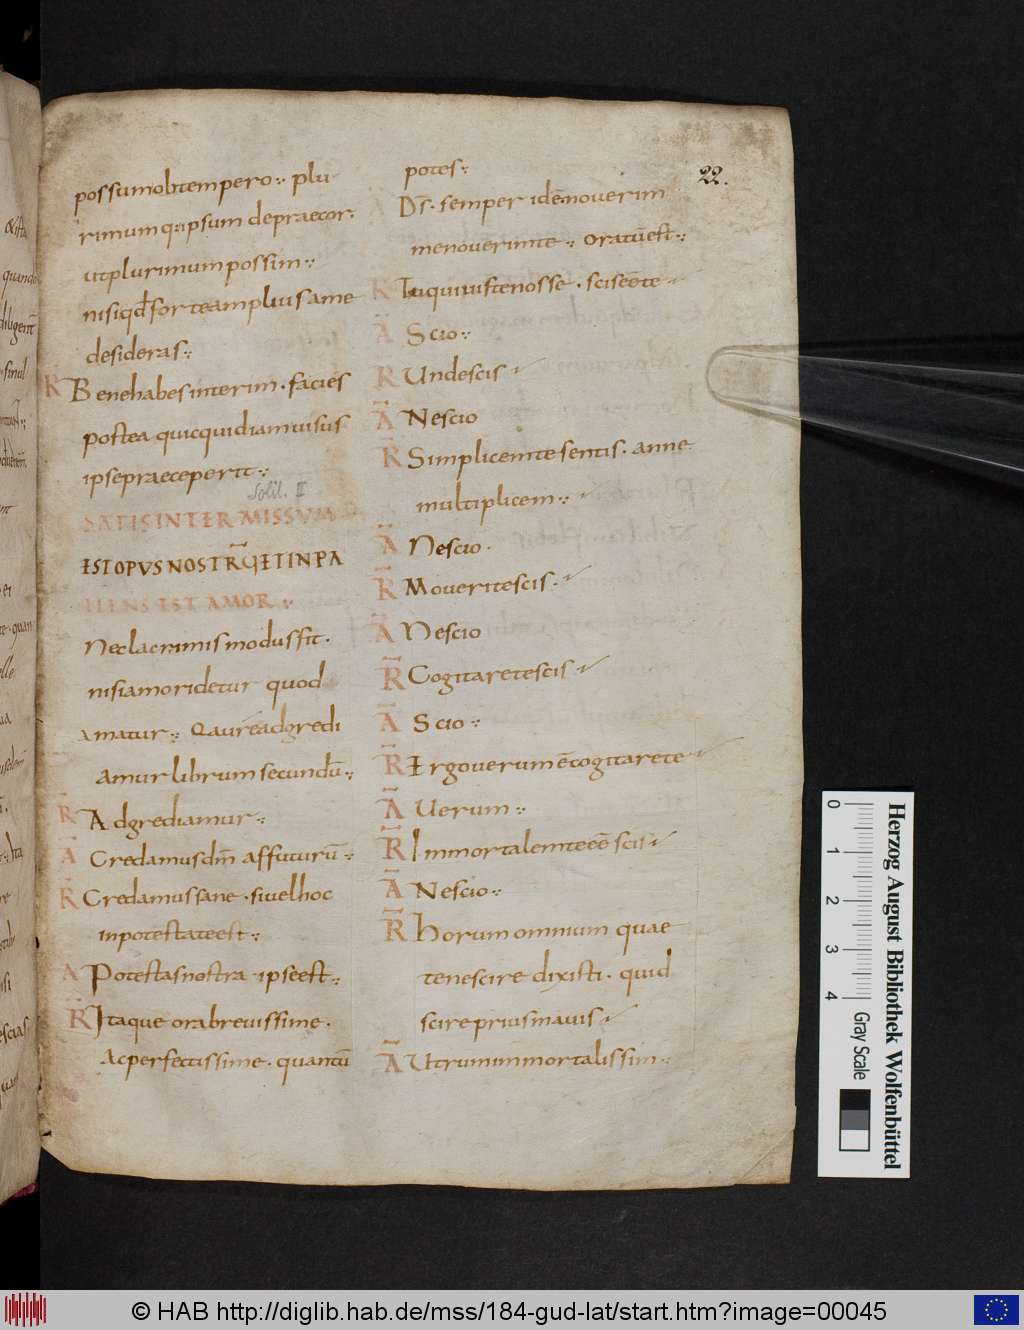 possum obtempero ∵ plu
rimumq: ipsum depraecor.
ut plurimum possim ∵
nisi qd̄ forte amplius a me
desideras ∵
R̄ Bene habes interim · facies
postea quicquid iam uisus
ipse praeceperit ∵
Solil. II
SATIS INTERMISSUM
EST OPVS NOSTRŪ ET INPA
TIENS EST AMOR ∵
Nec lacrimis modus fit ·
nisi amori detur quod
amatur ∵ Quāre adgredi
amur librum secundū ∵
R̄ Adgrediamur ∵
Ā Credamus dm̄ affuturū ∵
R̄ Credamus sane · si uel hoc
in potestate est ∵
Ā Potestas nostra · ipse est ∵
R̄ Itaque ora breuissime ·
Ac perfectissime · quantū
potes ∵
22.
Ā Ds̄ · semper idē nouerim
me nouerim te ∵ oratū est ∵
R̄ Tu qui uis te nosse · scis eē te
Ā Scio ∵
R̄ Unde scis
Ā Nescio
R̄ Simplicem te sentis · anne
multiplicem ∵
Ā Nescio ·
R̄ Moueri te scis ·
Ā Nescio
R̄ Cogitare te scis
Ā Scio ∵
R̄ Ergo uerum ē cogitare te
Ā Uerum ∵
R̄ Immortalem te eē scis
Ā Nescio ∵
R̄ Horum omnium quae
te nescire dixisti · quid
scire prius mauis
Ā Utrum inmortalis sim ∵
0
1
2
3
4
Gray Scale
Herzog August Bibliothek Wolfenbüttel
© HAB http://diglib.hab.de/mss/184-gud-lat/start.htm?image=00045